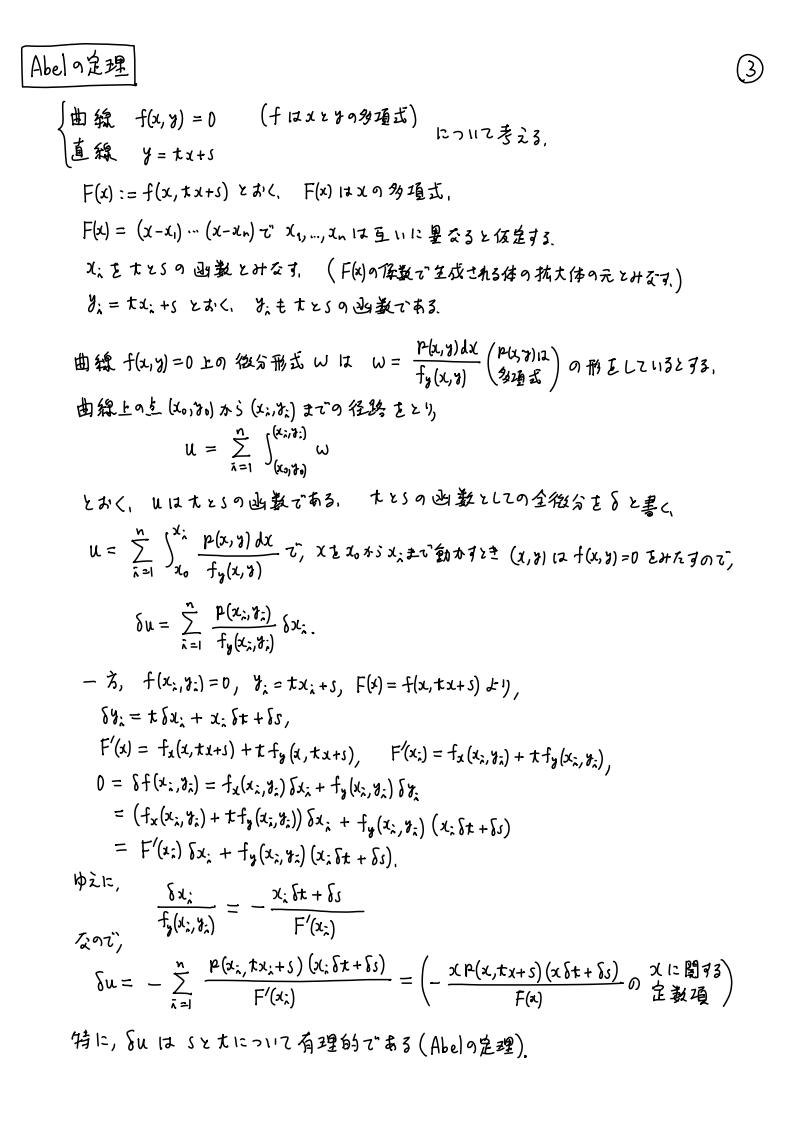 Abelの定理
③
曲線 f(x,y) = 0 (f は x と y の多項式)
直線 y = tx+s について考える.
F(x) := f(x, tx+s) とおく. F(x) は x の多項式.
F(x) = (x-x₁)…(x-xₙ) で x₁,…,xₙ は互いに異なると仮定する.
xᵢ を t と s の函数とみなす. (F(x)の係数で生成される体の拡大体の元とみなす.)
yᵢ = txᵢ+s とおく. yᵢ も t と s の函数である.
曲線 f(x,y)=0 上の 微分形式 ω は ω = p(x,y)dx / f_y(x,y) (p(x,y)は多項式) の形をしているとする.
曲線上の点 (x₀,y₀) から (xᵢ,yᵢ) までの径路をとり,
u = Σ_{i=1}^{n} ∫_{(x₀,y₀)}^{(xᵢ,yᵢ)} ω
とおく. u は t と s の函数である. t と s の函数としての全微分を δ と書く.
u = Σ_{i=1}^{n} ∫_{x₀}^{xᵢ} p(x,y)dx / f_y(x,y) で, x を x₀ から xᵢ まで動かすとき (x,y) は f(x,y)=0 をみたすので,
δu = Σ_{i=1}^{n} p(xᵢ,yᵢ) / f_y(xᵢ,yᵢ) δxᵢ.
一方, f(xᵢ,yᵢ)=0, yᵢ=txᵢ+s, F(x)=f(x,tx+s) より,
δyᵢ = tδxᵢ + xᵢδt+δs,
F′(x) = f_x(x,tx+s)+t f_y(x,tx+s), F′(xᵢ) = f_x(xᵢ,yᵢ)+t f_y(xᵢ,yᵢ),
0 = δf(xᵢ,yᵢ) = f_x(xᵢ,yᵢ)δxᵢ + f_y(xᵢ,yᵢ)δyᵢ
= (f_x(xᵢ,yᵢ)+t f_y(xᵢ,yᵢ))δxᵢ + f_y(xᵢ,yᵢ)(xᵢδt+δs)
= F′(xᵢ)δxᵢ + f_y(xᵢ,yᵢ)(xᵢδt+δs).
ゆえに,
δxᵢ / f_y(xᵢ,yᵢ) = - (xᵢδt+δs) / F′(xᵢ)
なので,
δu = - Σ_{i=1}^{n} p(xᵢ,txᵢ+s)(xᵢδt+δs) / F′(xᵢ) = (- xp(x,tx+s)(xδt+δs) / F(x) の x に関する定数項)
特に, δu は s と t について有理的である (Abelの定理).